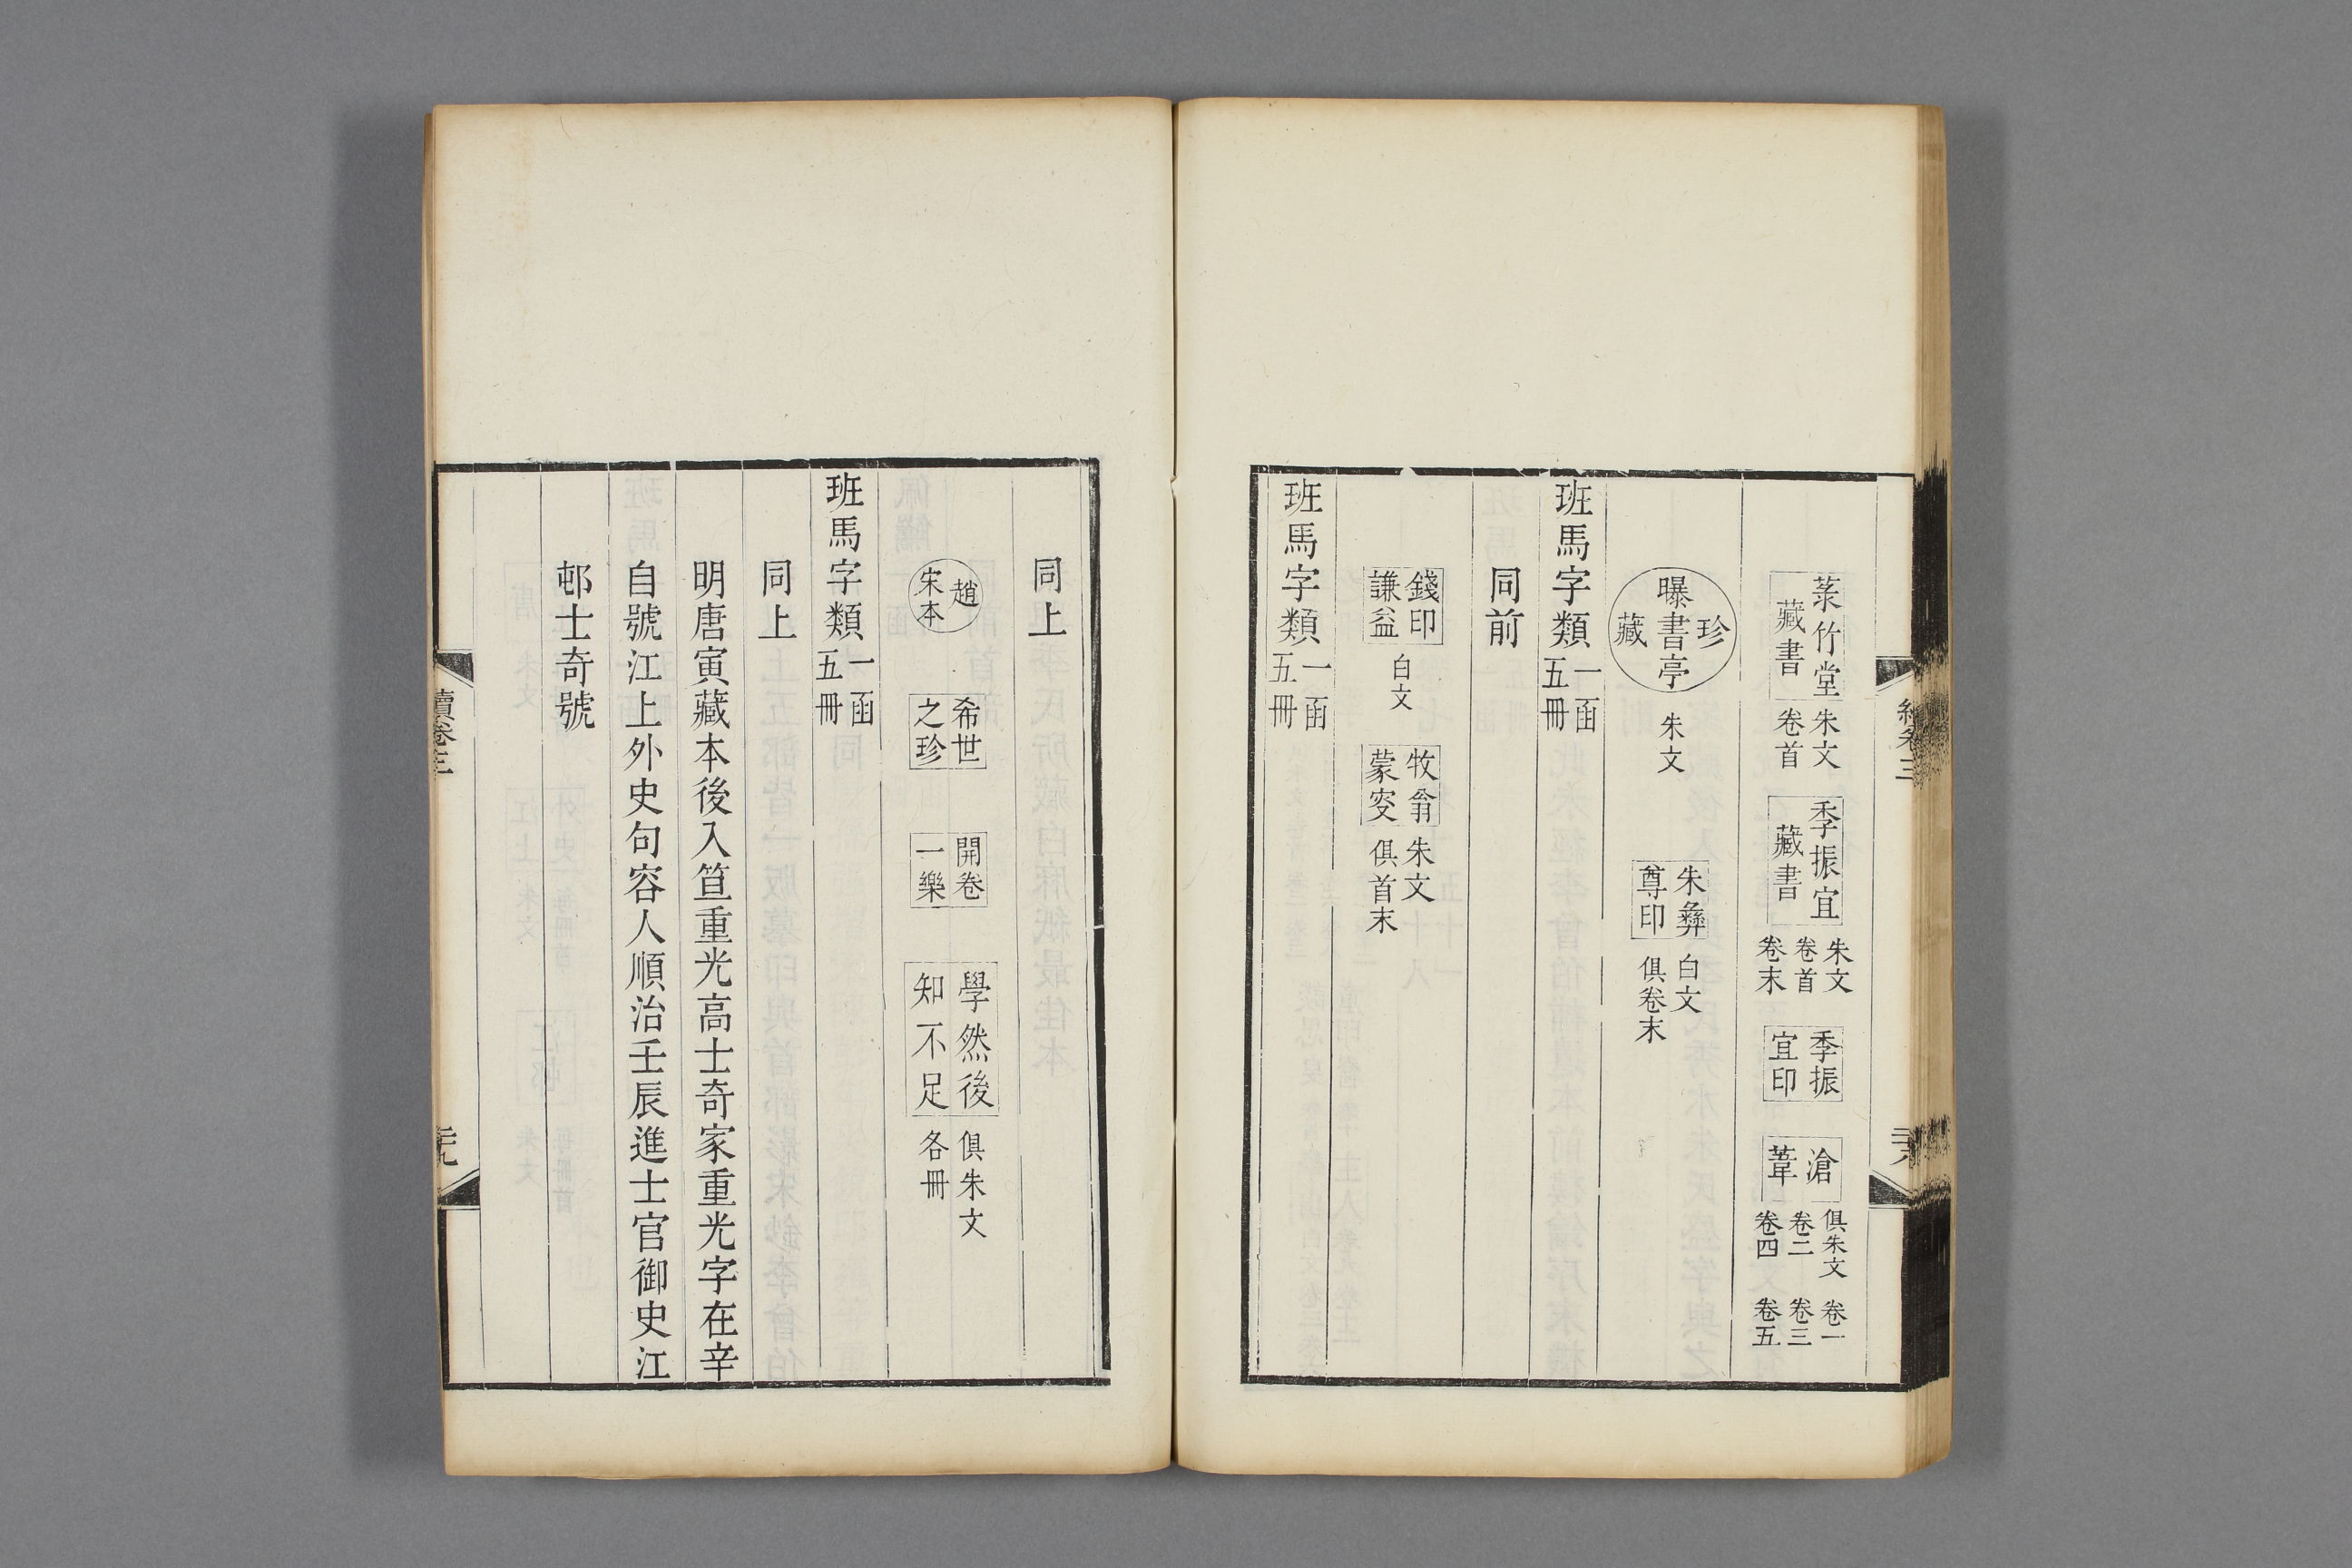 菉竹堂
藏書
朱文
卷首
季振宜
藏書
朱文
卷首
卷末
季振
宜印
滄
葦
俱朱文
卷一
卷二
卷三
卷四
卷五
珍
曝書亭
藏
朱文
朱彝
尊印
白文
俱卷末
班馬字類
一函
五冊
同前
錢印
謙益
白文
牧翁
蒙叟
朱文
俱首末
班馬字類
一函
五冊
同上
趙
宋本
希世
之珍
開卷
一樂
學然後
知不足
俱朱文
各冊
班馬字類
一函
五冊
同上
明唐寅藏本後入笪重光高士奇家重光字在辛
自號江上外史句容人順治壬辰進士官御史江
邨士奇號
續卷三